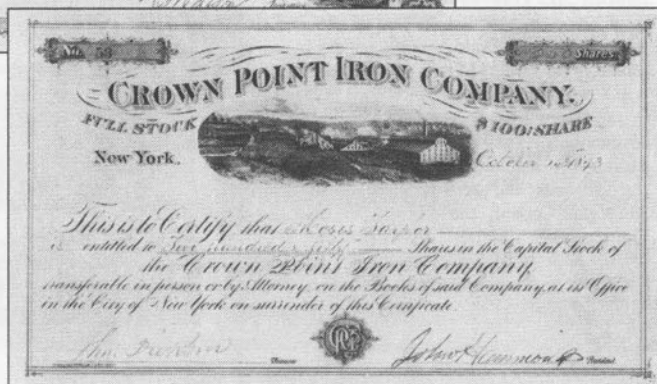 No. 53 Shares
CROWN POINT IRON COMPANY.
FULL STOCK $100: SHARE
New York. October 1873
This is to Certify that Moses Taylor
is entitled to Two hundred & fifty Shares in the Capital Stock of
the Crown Point Iron Company,
transferable in person or by Attorney on the Books of said Company, at its Office
in the City of New York on surrender of this Certificate.
Treasurer John Hammond President